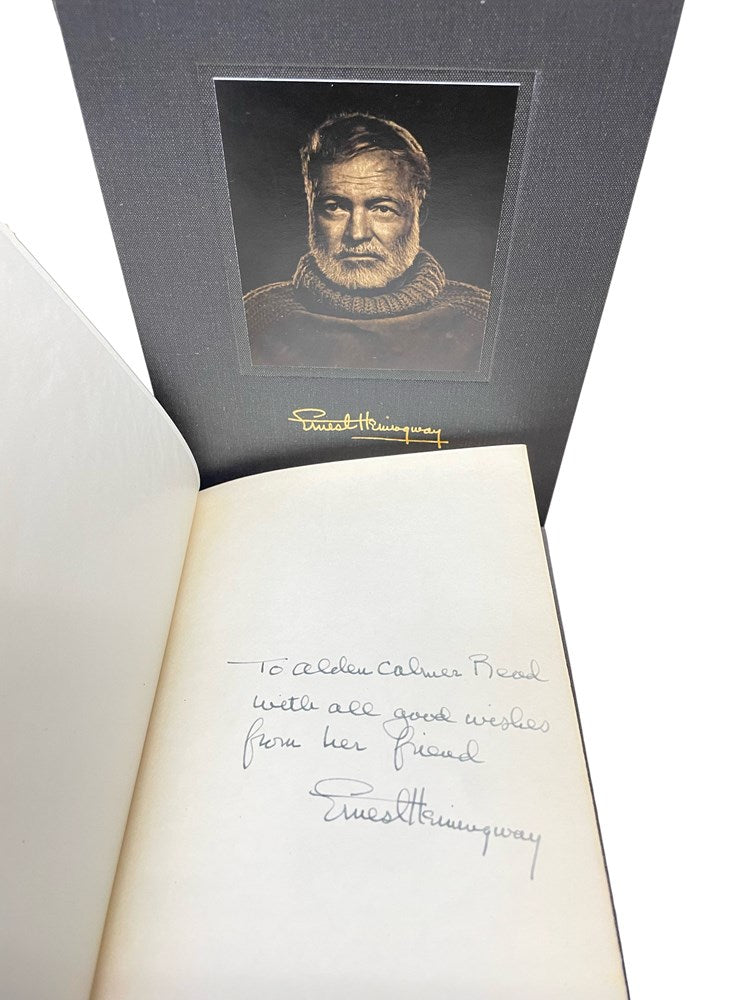 Ernest Hemingway
To Alden Calmer Read
with all good wishes
from her friend
Ernest Hemingway